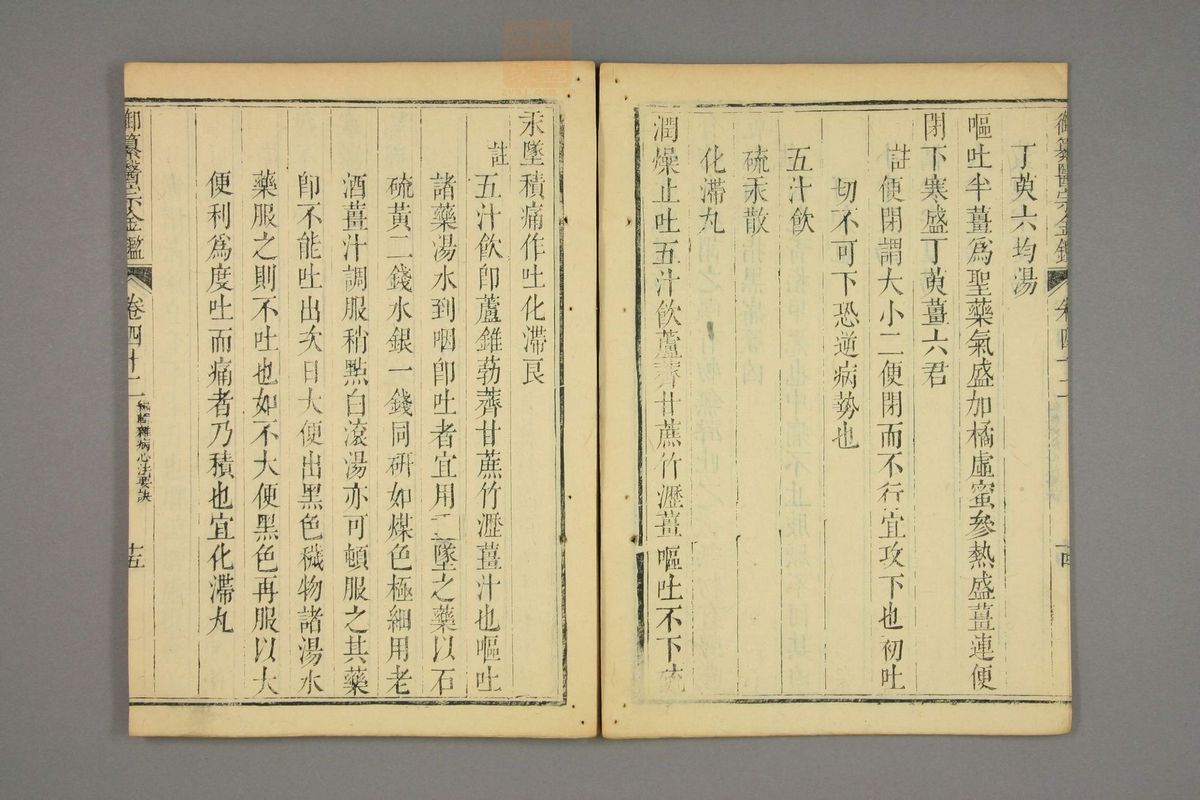 御纂醫宗金鑑
卷四十二
十四
丁萸六均湯
嘔吐半薑爲聖藥氣盛加橘虛蜜參熱盛薑連便
閉下寒盛丁萸薑六君
註便閉謂大小二便閉而不行宜攻下也初吐
切不可下恐逆病勢也
五汁飲
硫汞散
化滯丸
潤燥止吐五汁飲蘆薺甘蔗竹瀝薑嘔吐不下硫
汞墜積痛作吐化滯良
註五汁飲卽蘆錐葧薺甘蔗竹瀝薑汁也嘔吐
諸藥湯水到咽卽吐者宜用重墜之藥以石
硫黃二錢水銀一錢同硏如煤色極細用老
酒薑汁調服稍㸃白滾湯亦可頓服之其藥
卽不能吐出次日大便出黑色穢物諸湯水
藥服之則不吐也如不大便黑色再服以大
便利爲度吐而痛者乃積也宜化滯丸
御纂醫宗金鑑
卷四十二
編輯雜病心法要訣
十五